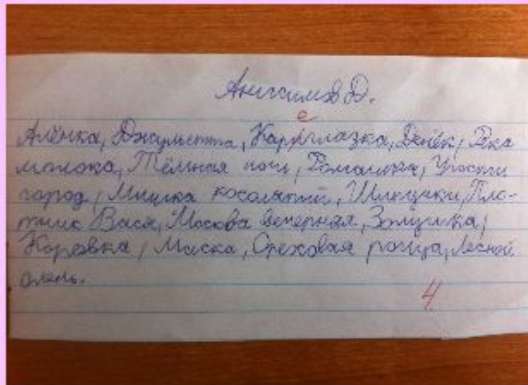 Анисимов Д.
е
Алёнка, Джульетта, Кариглазка, Денёк, Река
молока, Тёмная ночь, Ромашка,
город, Мишка косолапый, Пло-
тник Вася, Москва вечерняя, Золушка,
Коровка, Маска, Ореховая роща, Лесной
олень.
4